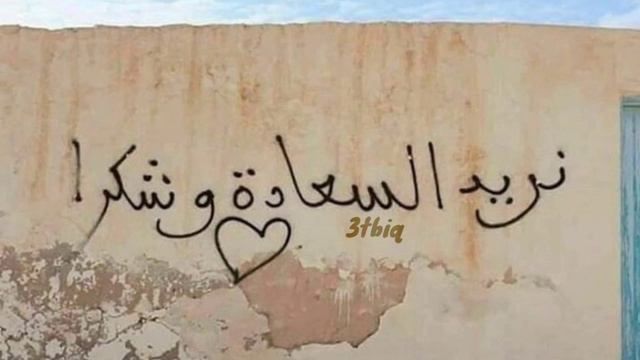 نريد السعادة وشكرا
3tbiq